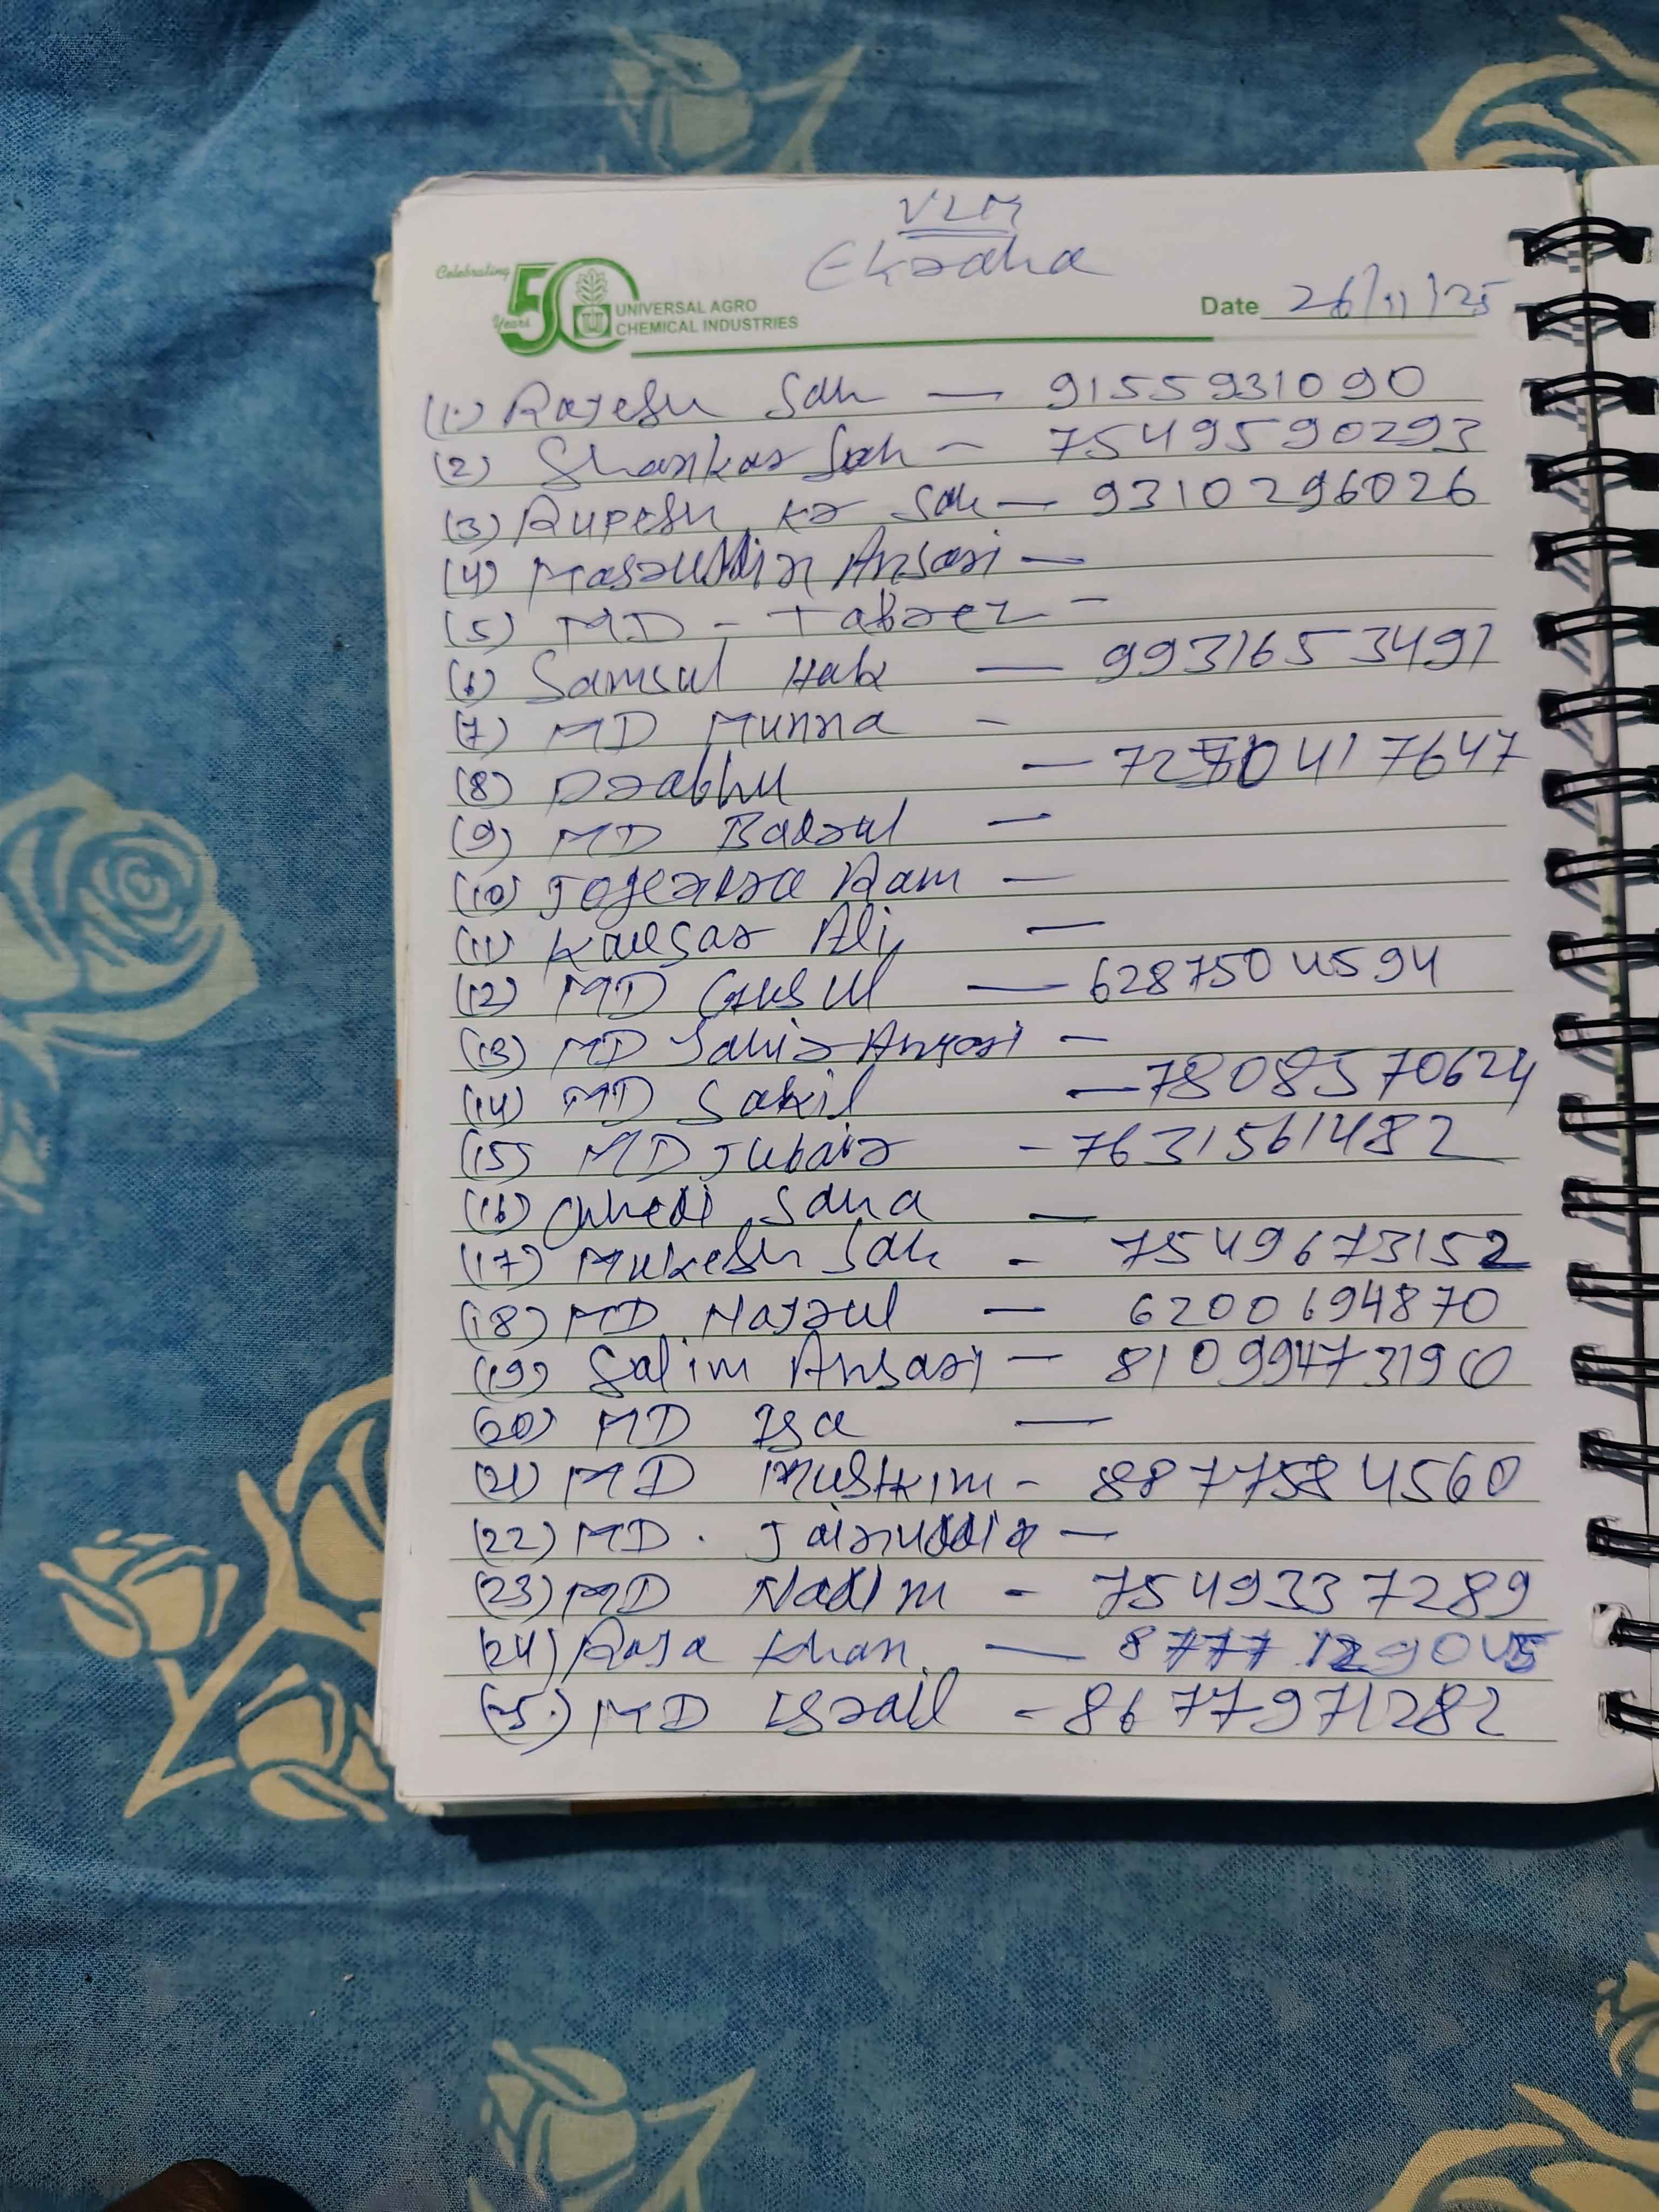 VLM
Ekraha
Celebrating 50 Years
UNIVERSAL AGRO
CHEMICAL INDUSTRIES
Date 26/11/25
(1.) Rajesh Sah — 9155931090
(2) Shankar Sah - 7549590293
(3) Rupesh kr Sah — 9310296026
(4) Masruddin Ansari —
(5) MD - Tabrez -
(6) Samsul Hak — 9931653491
(7) MD Munna -
(8) Prabhu — 7270417647
(9) MD Badrul —
(10) Jogendra Ram —
(11) Kausar Ali —
(12) MD Gusul — 6287504594
(13) MD Sahir Ansari —
(14) MD Sakil — 7808570624
(15) MD Jubair - 7631561482
(16) Chhedi Saha —
(17) Mukesh Sah - 7549673152
(18) MD Najrul — 6200694870
(19) Salim Ansari — 81099473190
(20) MD Isa —
(21) MD Mustkim - 8877584560
(22) MD. Jainuddin —
(23) MD Nadim - 7549337289
(24) Raja Khan —
(25.) MD Israil - 8677971282